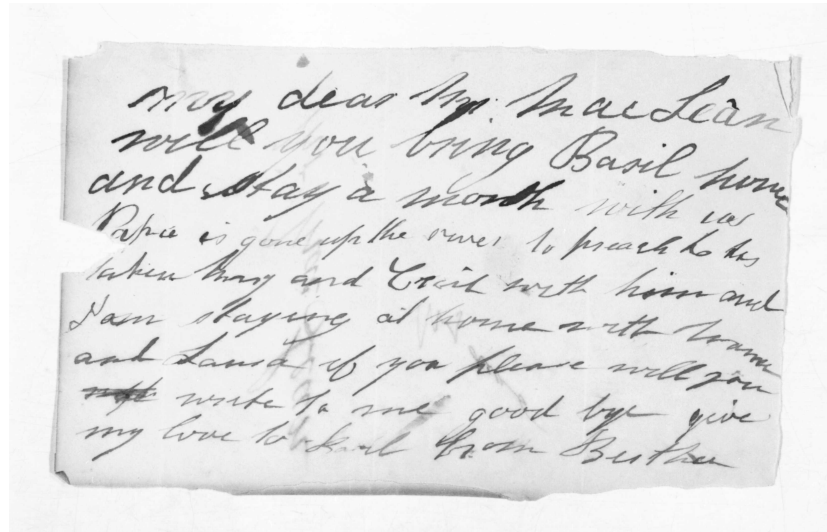 my dear Mr. MacLean
will you bring Basil home
and stay a month with us
Papa is gone up the river to preach & has
taken and Cecil with him and
I am staying at home with Mama
and Laura if you please will you
write to me good bye give
my love to Basil from Bertha